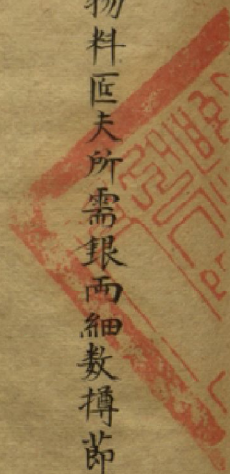 物料匠夫所需銀兩細数撙節